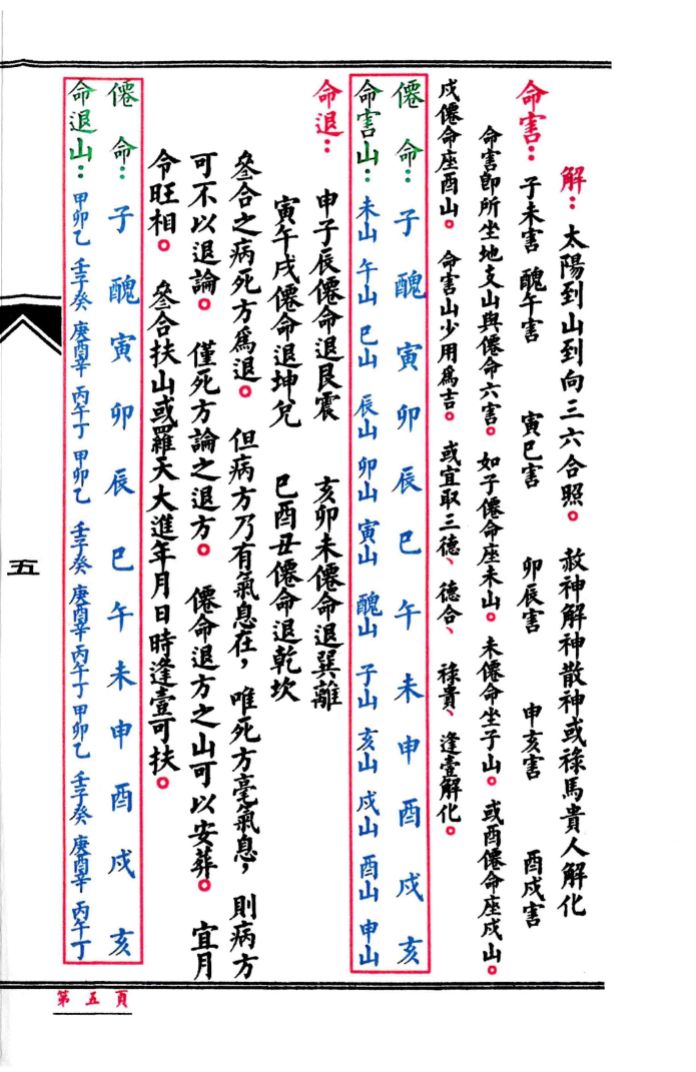 解：太陽到山到向三六合照。赦神解神散神或祿馬貴人解化
命害：子未害 醜午害 寅巳害 卯辰害 申亥害 酉戌害
命害卽所坐地支山與僊命六害。如子僊命座未山。未僊命坐子山。或酉僊命座戌山。
戌僊命座酉山。命害山少用爲吉。或宜取三德、德合、祿貴、逢壹解化。
僊命：子醜寅卯辰巳午未申酉戌亥
命害山：未山 午山 巳山 辰山 卯山 寅山 醜山 子山 亥山 戌山 酉山 申山
命退：申子辰僊命退艮震 亥卯未僊命退巽離
寅午戌僊命退坤兌 巳酉丑僊命退乾坎
叄合之病死方爲退。但病方乃有氣息在，唯死方毫氣息，則病方
可不以退論。僅死方論之退方。僊命退方之山可以安葬。宜月
令旺相。叄合扶山或羅天大進年月日時逢壹可扶。
僊命：子醜寅卯辰巳午未申酉戌亥
命退山：甲卯乙 壬子癸 庚酉辛 丙午丁 甲卯乙 壬子癸 庚酉辛 丙午丁 甲卯乙 壬子癸 庚酉辛 丙午丁
五
第五頁